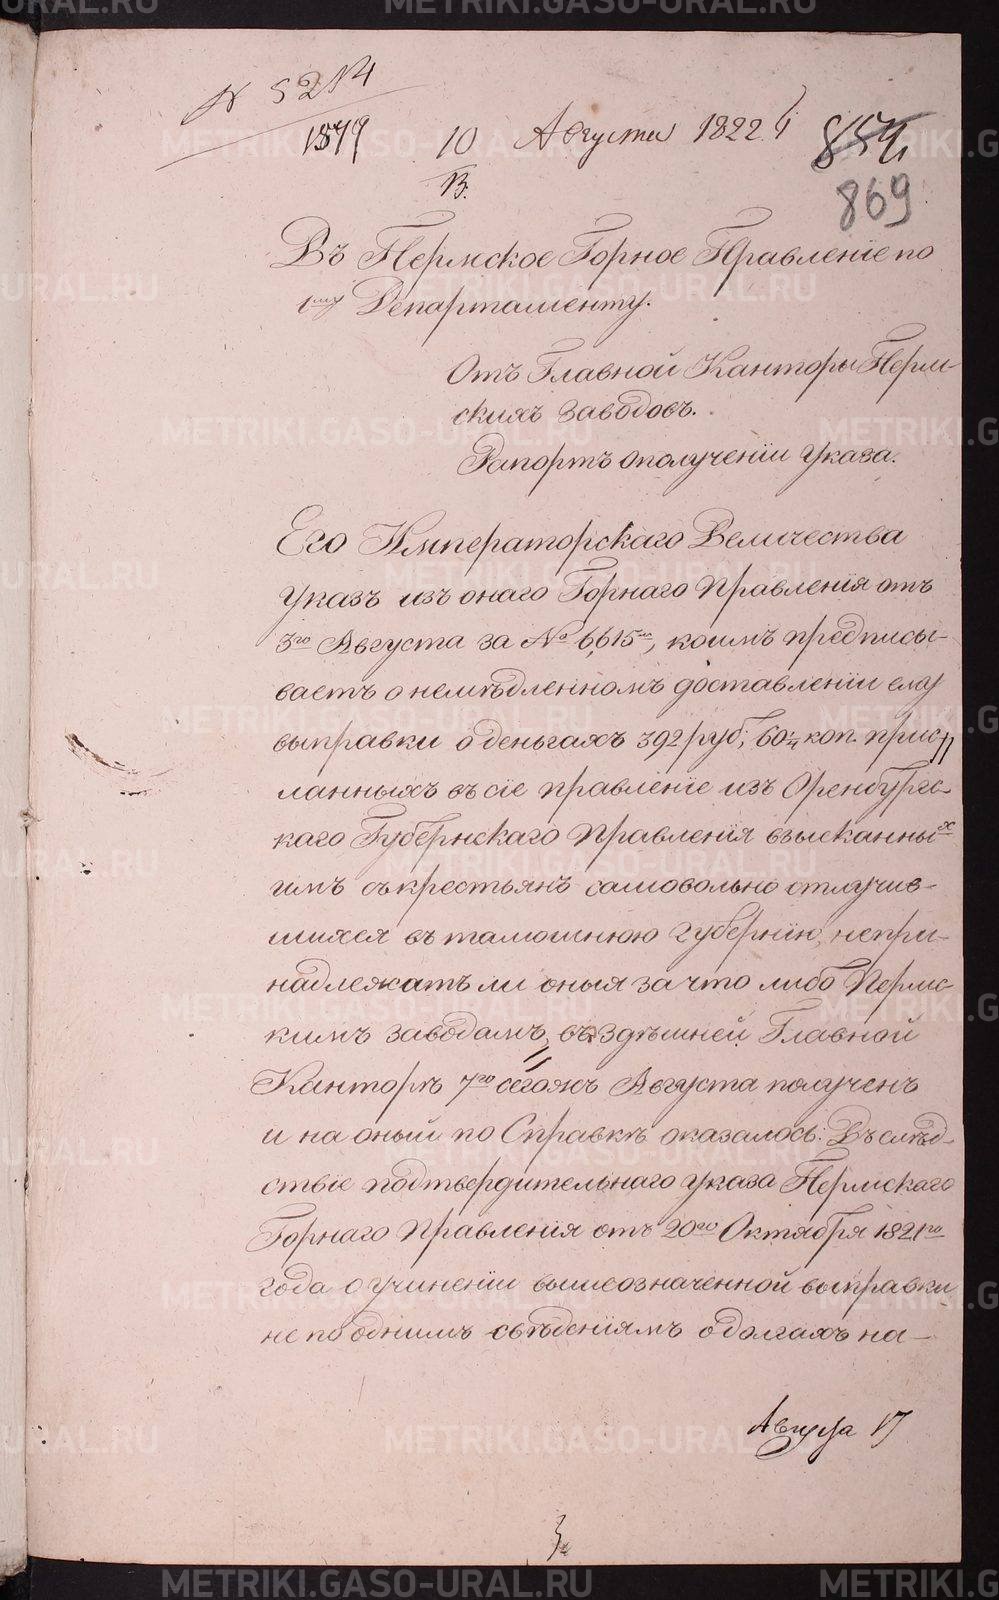 N 5214
1879
10 Августа 1822
В.
869
Въ Пермское Горное Правленіе по
1му Департаменту.
Отъ Главной Канторы Перм-
скихъ Заводовъ.
Рапортъ ополученіи Указа.
Его Императорскаго Величества
Указъ изъ онаго Горнаго Правленія отъ
3го Августа за № 6,615м, коимъ предписы-
ваетъ о немѣдленномъ доставленіи ему
выправки о деньгахъ 392 руб; 60¼ коп. прис
ланныхъ въ сіе правленіе изъ Оренбургс-
каго Губернскаго Правленія взысканных
имъ съ крестьянъ самовольно отлучив-
шихся въ тамошнюю губернію, непри-
надлежатъ ли оныя за что либо Пермс-
кимъ заводамъ, въ здѣшней Главной
Канторѣ 7го сегожъ Августа полученъ
и на оный по Справкѣ оказалось: Въ слѣд-
ствіе подтвердительнаго указа Пермскаго
Горнаго Правленія отъ 20го Октября 1821го
года о учиненіи вышеозначенной выправки
не по однимъ свѣденіямъ о долгахъ на-
Августа 17
METRIKI.GASO-URAL.RU